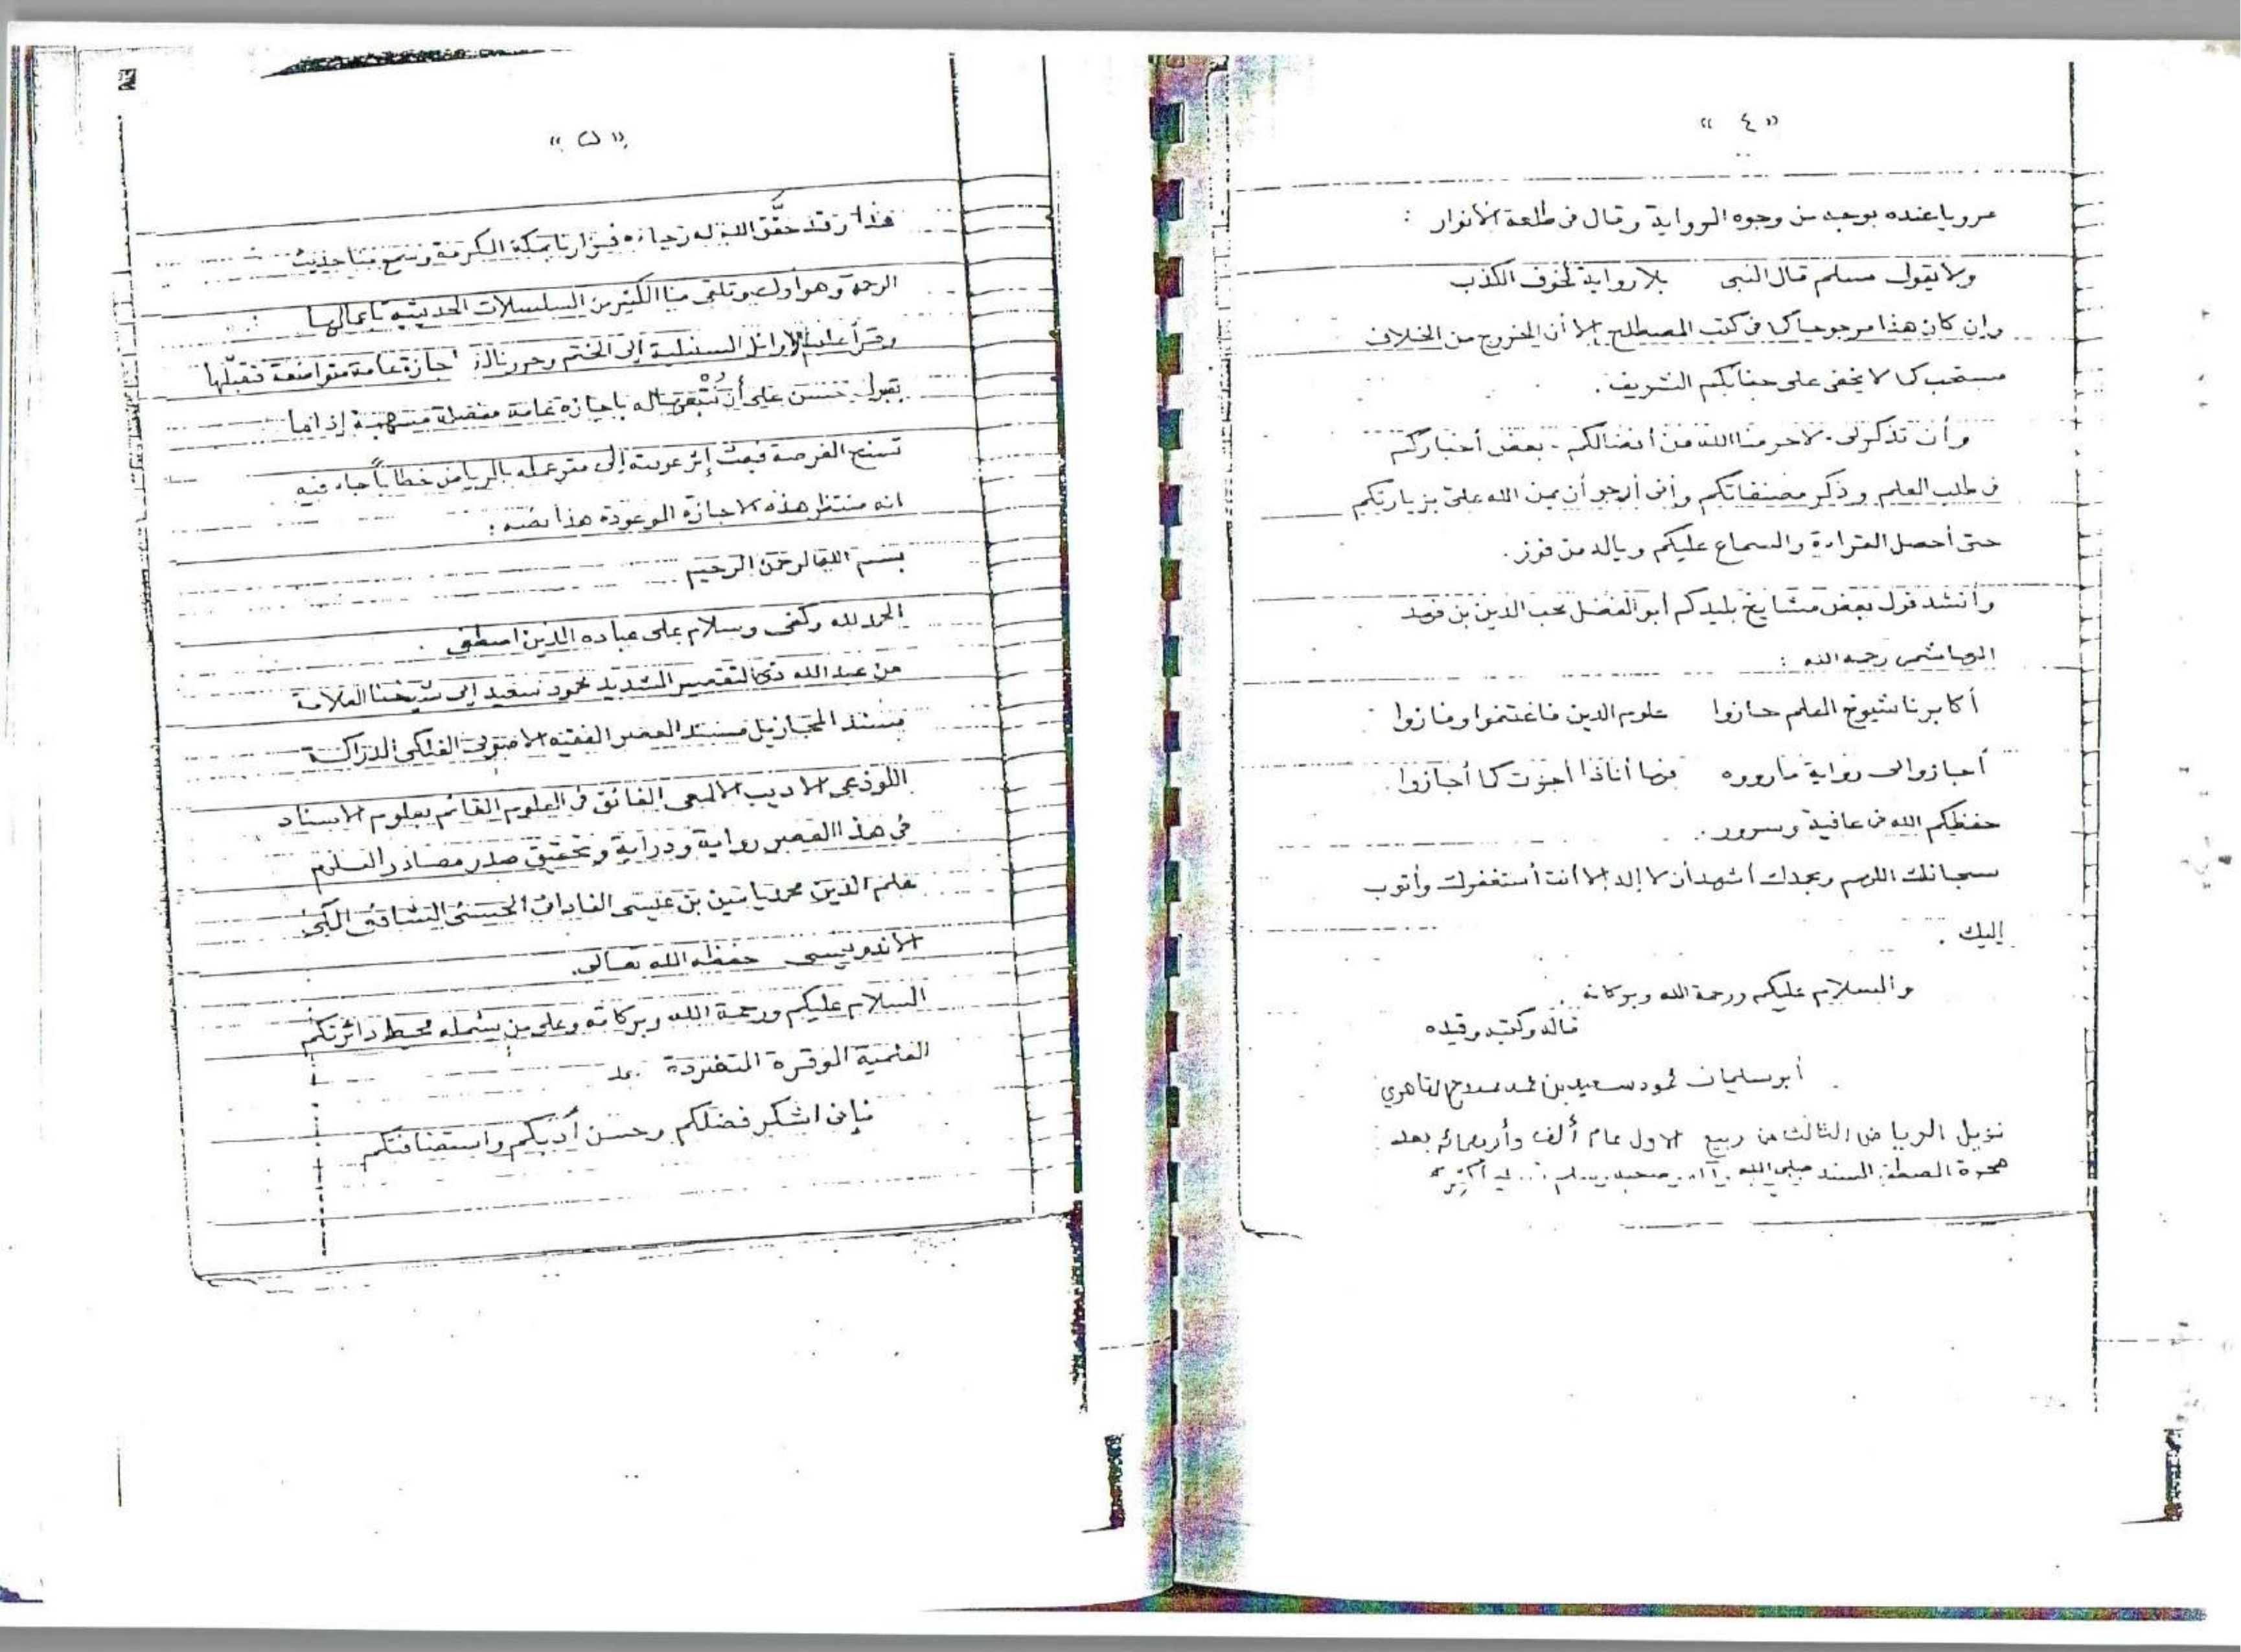 « ٤ »
مرويا عنده بوجه من وجوه الرواية وقال فى طلعة الأنوار :
ولا يقول مسلم قال النبى بلا رواية لخوف الكذب
وإن كان هذا مرجوحا كما فى كتب المصطلح إلا أن الخروج من الخلاف
مستحب كما لا يخفى على جنابكم الشريف .
وأن تذكر لى - لا حرمنا الله من أفضالكم - بعض أخباركم
فى طلب العلم وذكر مصنفاتكم وأنى أرجو أن يمن الله علىّ بزيارتكم
حتى أحصل القراءة والسماع عليكم وياله من فوز .
وأنشد قول بعض مشايخ بليدكم أبو الفضل محب الدين بن فهد
الهاشمى رحمه الله :
أكابرنا شيوخ العلم حازوا علوم الدين فاغتنموا وفازوا
أجازوا لى رواية ما رووه فها أناذا أجزت كما أجازوا
حفظكم الله فى عافية وسرور .
سبحانك اللهم وبحمدك أشهد أن لا إله إلا أنت أستغفرك وأتوب
إليك .
والسلام عليكم ورحمة الله وبركاته
قاله وكتبه وقيده
أبو سليمان محمود سعيد بن محمد ممدوح القاهري
نزيل الرياض الثالث من ربيع الاول عام ألف وأربعمائة بعد
هجرة المصطفى السند صلى الله وآله وصحبه وسلم
« ٥ »
هذا وقد حقّق الله له رجاءه فزارنا بمكة المكرمة وسمع منا حديث
الرحمة وهو أول وتلقى منا الكثير من المسلسلات الحديثيه بأعمالها
وقرأ علىنا الاوائل السنبلية إلى الختم وحررنا له اجازة عامة متواضعة فتقبّلها
بقبول حسن على أن نُتْبعها له باجازة عامة مفصلة منتهية إذ انها
تسنح الفرصة فبعث إثر عودته إلى مقر عمله بالرياض خطاباً جاء فيه
انه منتظر هذه الاجازة الموعودة هذا نصه :
بسم الله الرحمن الرحيم
الحمد لله وكفى وسلام على عباده الذين اصطفى .
من عبد الله ذى التقصير الشديد محمود سعيد إلى شيخنا العلامة
مسند الحجاز بل مسند العصر الفقيه الاصولى الفلكى الدراكة
اللوذعى الاديب الالمعى الفائق فى العلوم القائم بعلوم الاسناد
فى هذا العصر رواية ودراية وتحقيق صدر مصادر العلوم
علم الدين محمد ياسين بن عيسى الفادانى الحسنى الشافعى المكى
الاندونيسى حفظه الله تعالى.
السلام عليكم ورحمة الله وبركاته وعلى من يشمله محيط دائرتكم
العلمية الموقرة المتفردة بعد
فإنى اشكر فضلكم وحسن أدبكم واستضافتكم